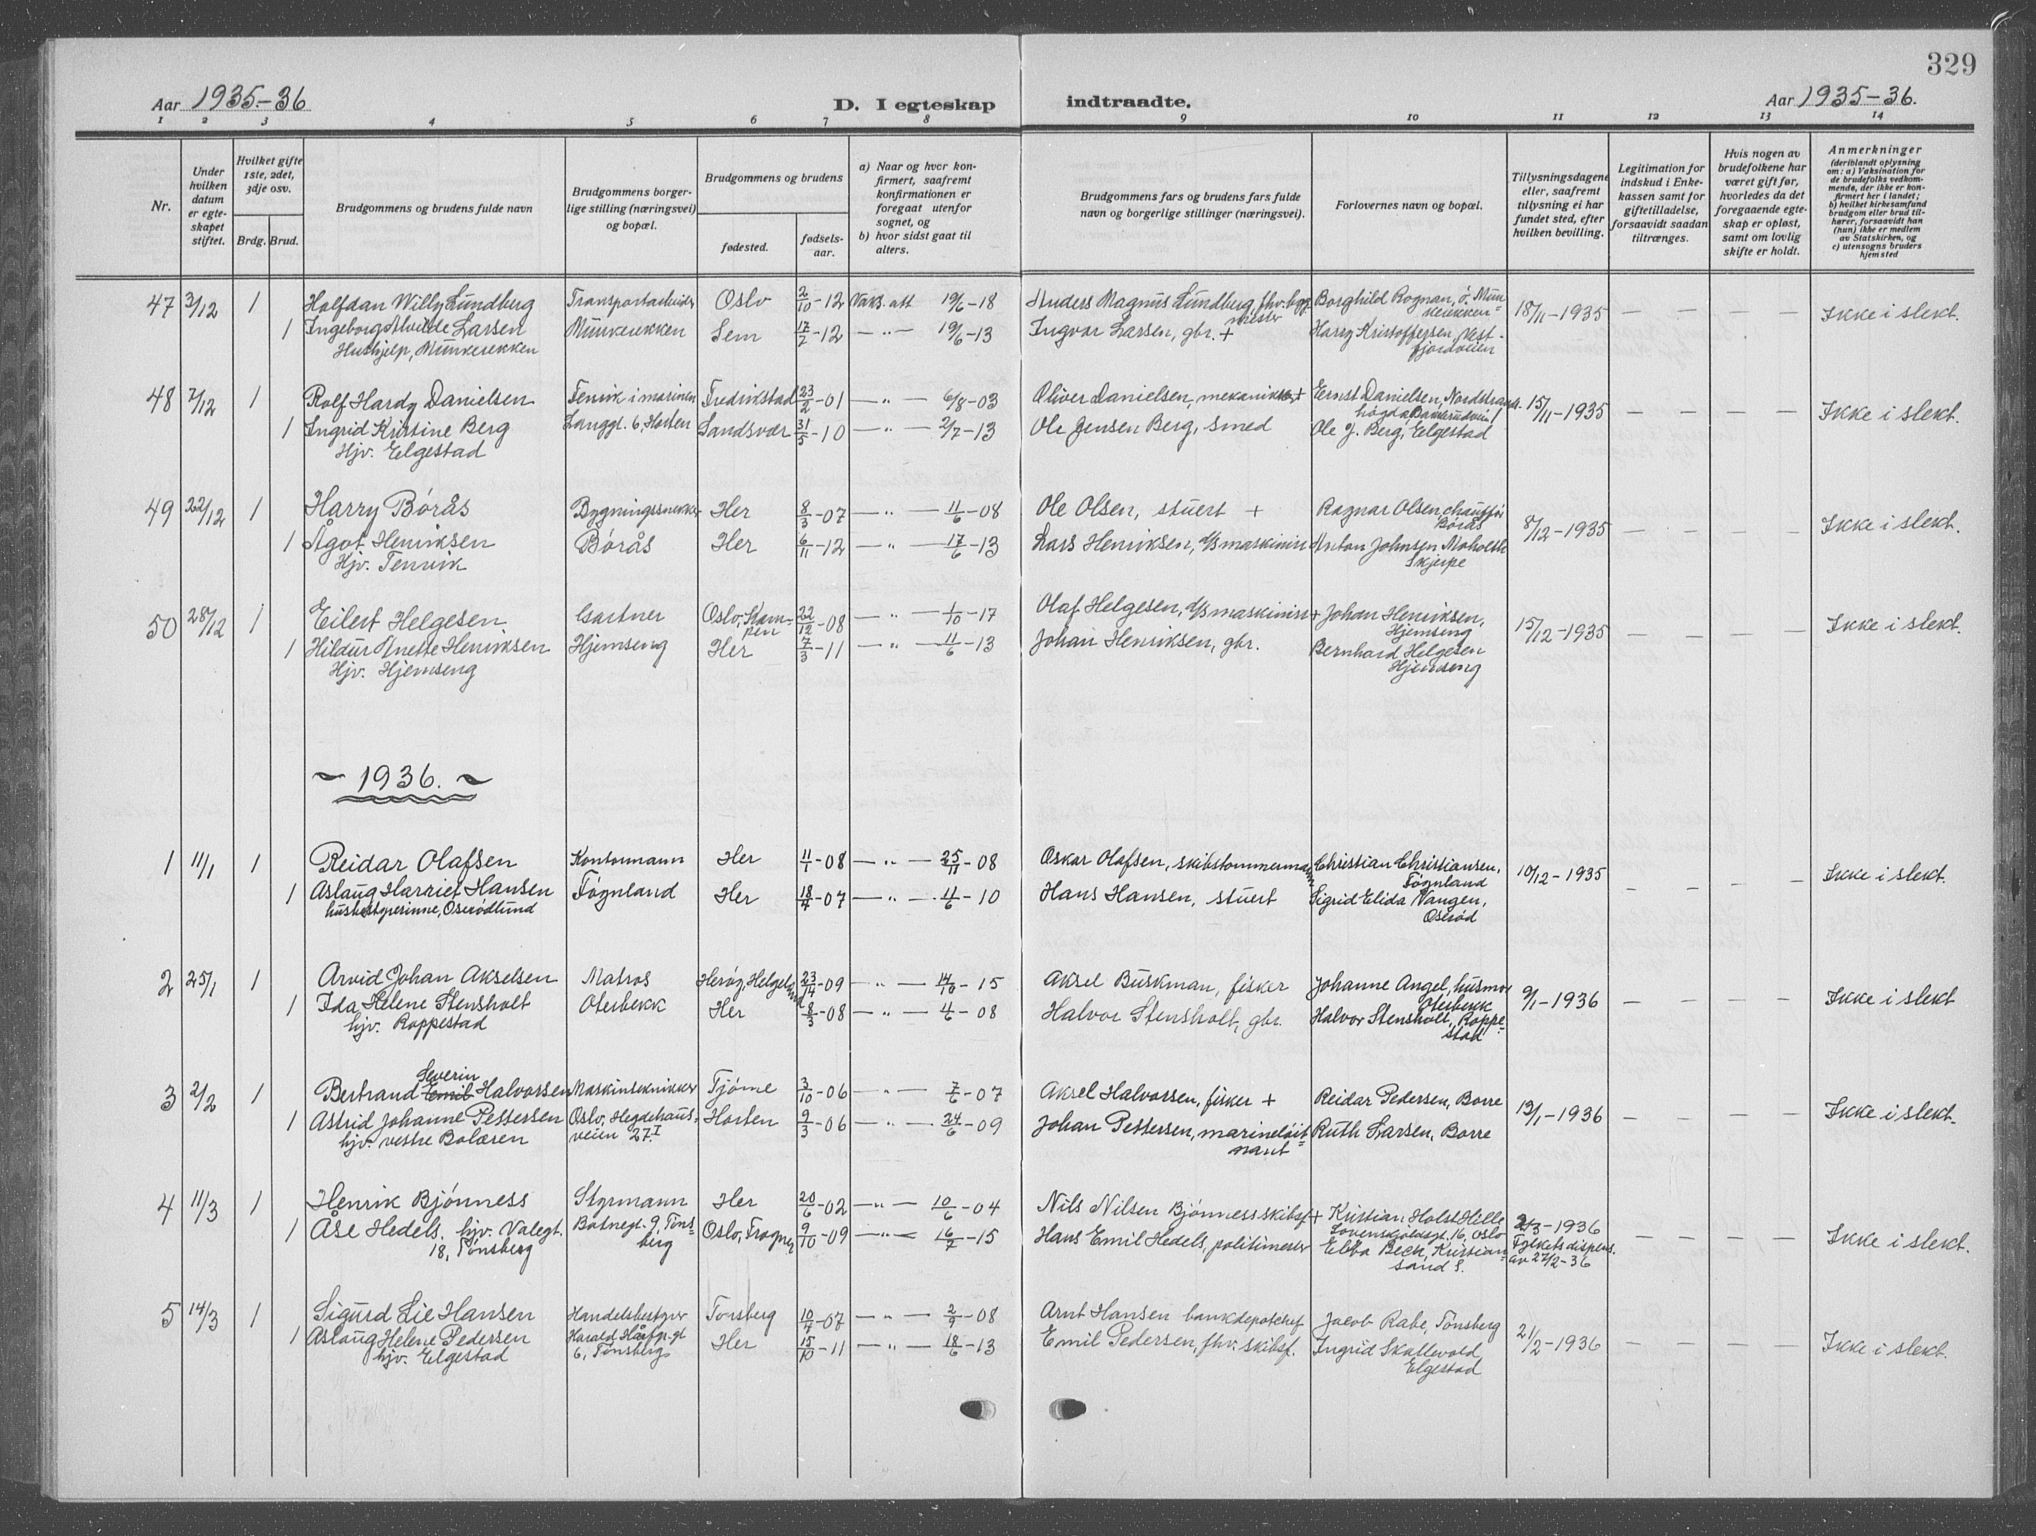 329
Aar 1935-36
D. I egteskap indtraadte.
Aar 1935-36.
1 2 3 4 5 6 7 8 9 10 11 12 13 14
Nr.
Under hvilken datum er egteskapet stiftet.
Hvilket gifte 1ste, 2det, 3dje osv.
Brdg. Brud.
Brudgommens og brudens fulde navn
Brudgommens borgerlige stilling (næringsvei) og bopæl.
Brudgommens og brudens
fødested.
fødselsaar.
a) Naar og hvor konfirmert, saafremt konfirmationen er foregaat utenfor sognet, og
b) hvor sidst gaat til alters.
Brudgommens fars og brudens fars fulde navn og borgerlige stillinger (næringsvei).
Forlovernes navn og bopæl.
Tillysningsdagene eller, saafremt tillysning ei har fundet sted, efter hvilken bevilling.
Legitimation for indskud i Enkekassen samt for giftetilladelse, forsaavidt saadan tiltrænges.
Hvis nogen av brudefolkene har været gift før, hvorledes da det foregaaende egteskap er opløst, samt om lovlig skifte er holdt.
Anmerkninger
(deriblandt oplysning om: a) Vaksination for de brudefolks vedkommende, der ikke er konfirmert her i landet; b) hvilket kirkesamfund brudgom eller brud tilhører, forsaavidt han (hun) ikke er medlem av Statskirken, og c) utensogns bruders hjemsted
47 3/12 1 Halfdan Willy Lundberg Transportarbeider Oslo 2/10-12 Vaks. att 19/6-18 Anders Magnus Lundberg, fhv. bygmester Borghild Rognan, ø. Munkerekken 18/11-1935 — — — Ikke i slekt.
1 Ingeborg Alvilde Larsen Munkerekken Sem 17/7-12 —"— 19/6-13 Ingvar Larsen, gbr. + Harry Kristoffersen, Vestfjordveien
Hushjelp, Munkerekken
48 7/12 1 Rolf Hardy Danielsen Fenrik i marinen Fredrikstad 23/2-01 —"— 6/8-03 Oliver Danielsen, mekaniker + Ernst Danielsen, Nordstrandhøgda, 15/11-1935 — — — Ikke i slekt.
1 Ingrid Kristine Berg Langgt. 6, Horten Sandsvær 31/5-10 —"— 2/7-13 Ole Jensen Berg, smed Ole J. Berg, Elgestad
Hjv. Elgestad
49 22/12 1 Harry Børås Bygningssnekker Her 8/3-07 —"— 11/6-08 Ole Olsen, stuert + Ragnar Olsen, chauffør Børås 8/12-1935 — — — Ikke i slekt.
1 Ågot Henriksen Børås Her 6/11-12 —"— 17/6-13 Lars Henriksen, d/s maskinist Anton Johnsen Moholth Skjerpe
Hjv. Tenvik
50 28/12 1 Eilert Helgesen Gartner Oslo, Kampen 22/12-08 —"— 1/10-17 Olaf Helgesen, d/s maskinist + Johan Henriksen, Hjemseng 15/12-1935 — — — Ikke i slekt.
1 Hildur Anette Henriksen Hjemseng Her 7/3-11 —"— 11/6-13 Johan Henriksen, gbr. Bernhard Helgesen Hjemseng
Hjv. Hjemseng
~ 1936. ~
1 11/1 1 Reidar Olafsen Kontormann Her 11/1-08 —"— 25/11-08 Oskar Olafsen, skibstømmermann Christian Christiansen, Føgnland 10/12-1935 — — — Ikke i slekt.
1 Aslaug Harriet Hansen Føgnland Her 18/4-07 —"— 4/6-10 Hans Hansen, stuert Sigrid Elida Vangen, Oserød
husbestyrerinne, Oserødlund
2 25/1 1 Arvid Johan Akselsen Matros Herøy, Helgeland 23/12-09 —"— 14/10-15 Aksel Buskman, fisker Johanne Angel, husmor Oterbekk 9/1-1936 — — — Ikke i slekt
1 Ida Helene Stensholt Oterbekk Her 8/3-08 —"— 4/6-08 Halvor Stensholt, gbr. Halvor Stensholt, Roppestad
hjv. Roppestad
3 2/2 1 Bertrand Severin Emil Halvorsen Maskintekniker Tjøme 3/10-06 —"— 7/6-07 Aksel Halvorsen, fisker + Reidar Pedersen, Borre 13/1-1936 — — — Ikke i slekt.
1 Astrid Johanne Pettersen Oslo, Hegdehausveien 27 I Horten 9/3-06 —"— 24/6-09 Johan Pettersen, marineløitnant Ruth Larsen, Borre
hjv. vestre Bolæren
4 11/3 1 Henrik Bjønness Styrmann Her 20/6-02 —"— 10/6-04 Nils Nilsen Bjønness skibsf. + Kristian Holst Hille Lovenskioldsgt. 16, Oslo 2/3-1936 — — — Ikke i slekt.
1 Åse Hedels. hjv. Valøgt. 18, Tønsberg Båtnegt. 9, Tønsberg Oslo, Frogner 9/10-09 —"— 16/7-15 Hans Emil Hedels, politimester Ebba Beck, Kristiansand S. Fylkets dispens. av 27/2-36
5 14/3 1 Sigurd Lie Hansen Handelsbestyrer Tønsberg 10/4-07 —"— 2/9-08 Arnt Hansen bankdepotchef Jacob Rabe, Tønsberg 21/2-1936 — — — Ikke i slekt.
1 Aslaug Helene Pedersen Harald Hårfgr. gt 6, Tønsberg Her 15/10-11 —"— 18/6-13 Emil Pedersen, fhv. skibsf. Ingrid Skallevold, Elgestad
hjv. Elgestad